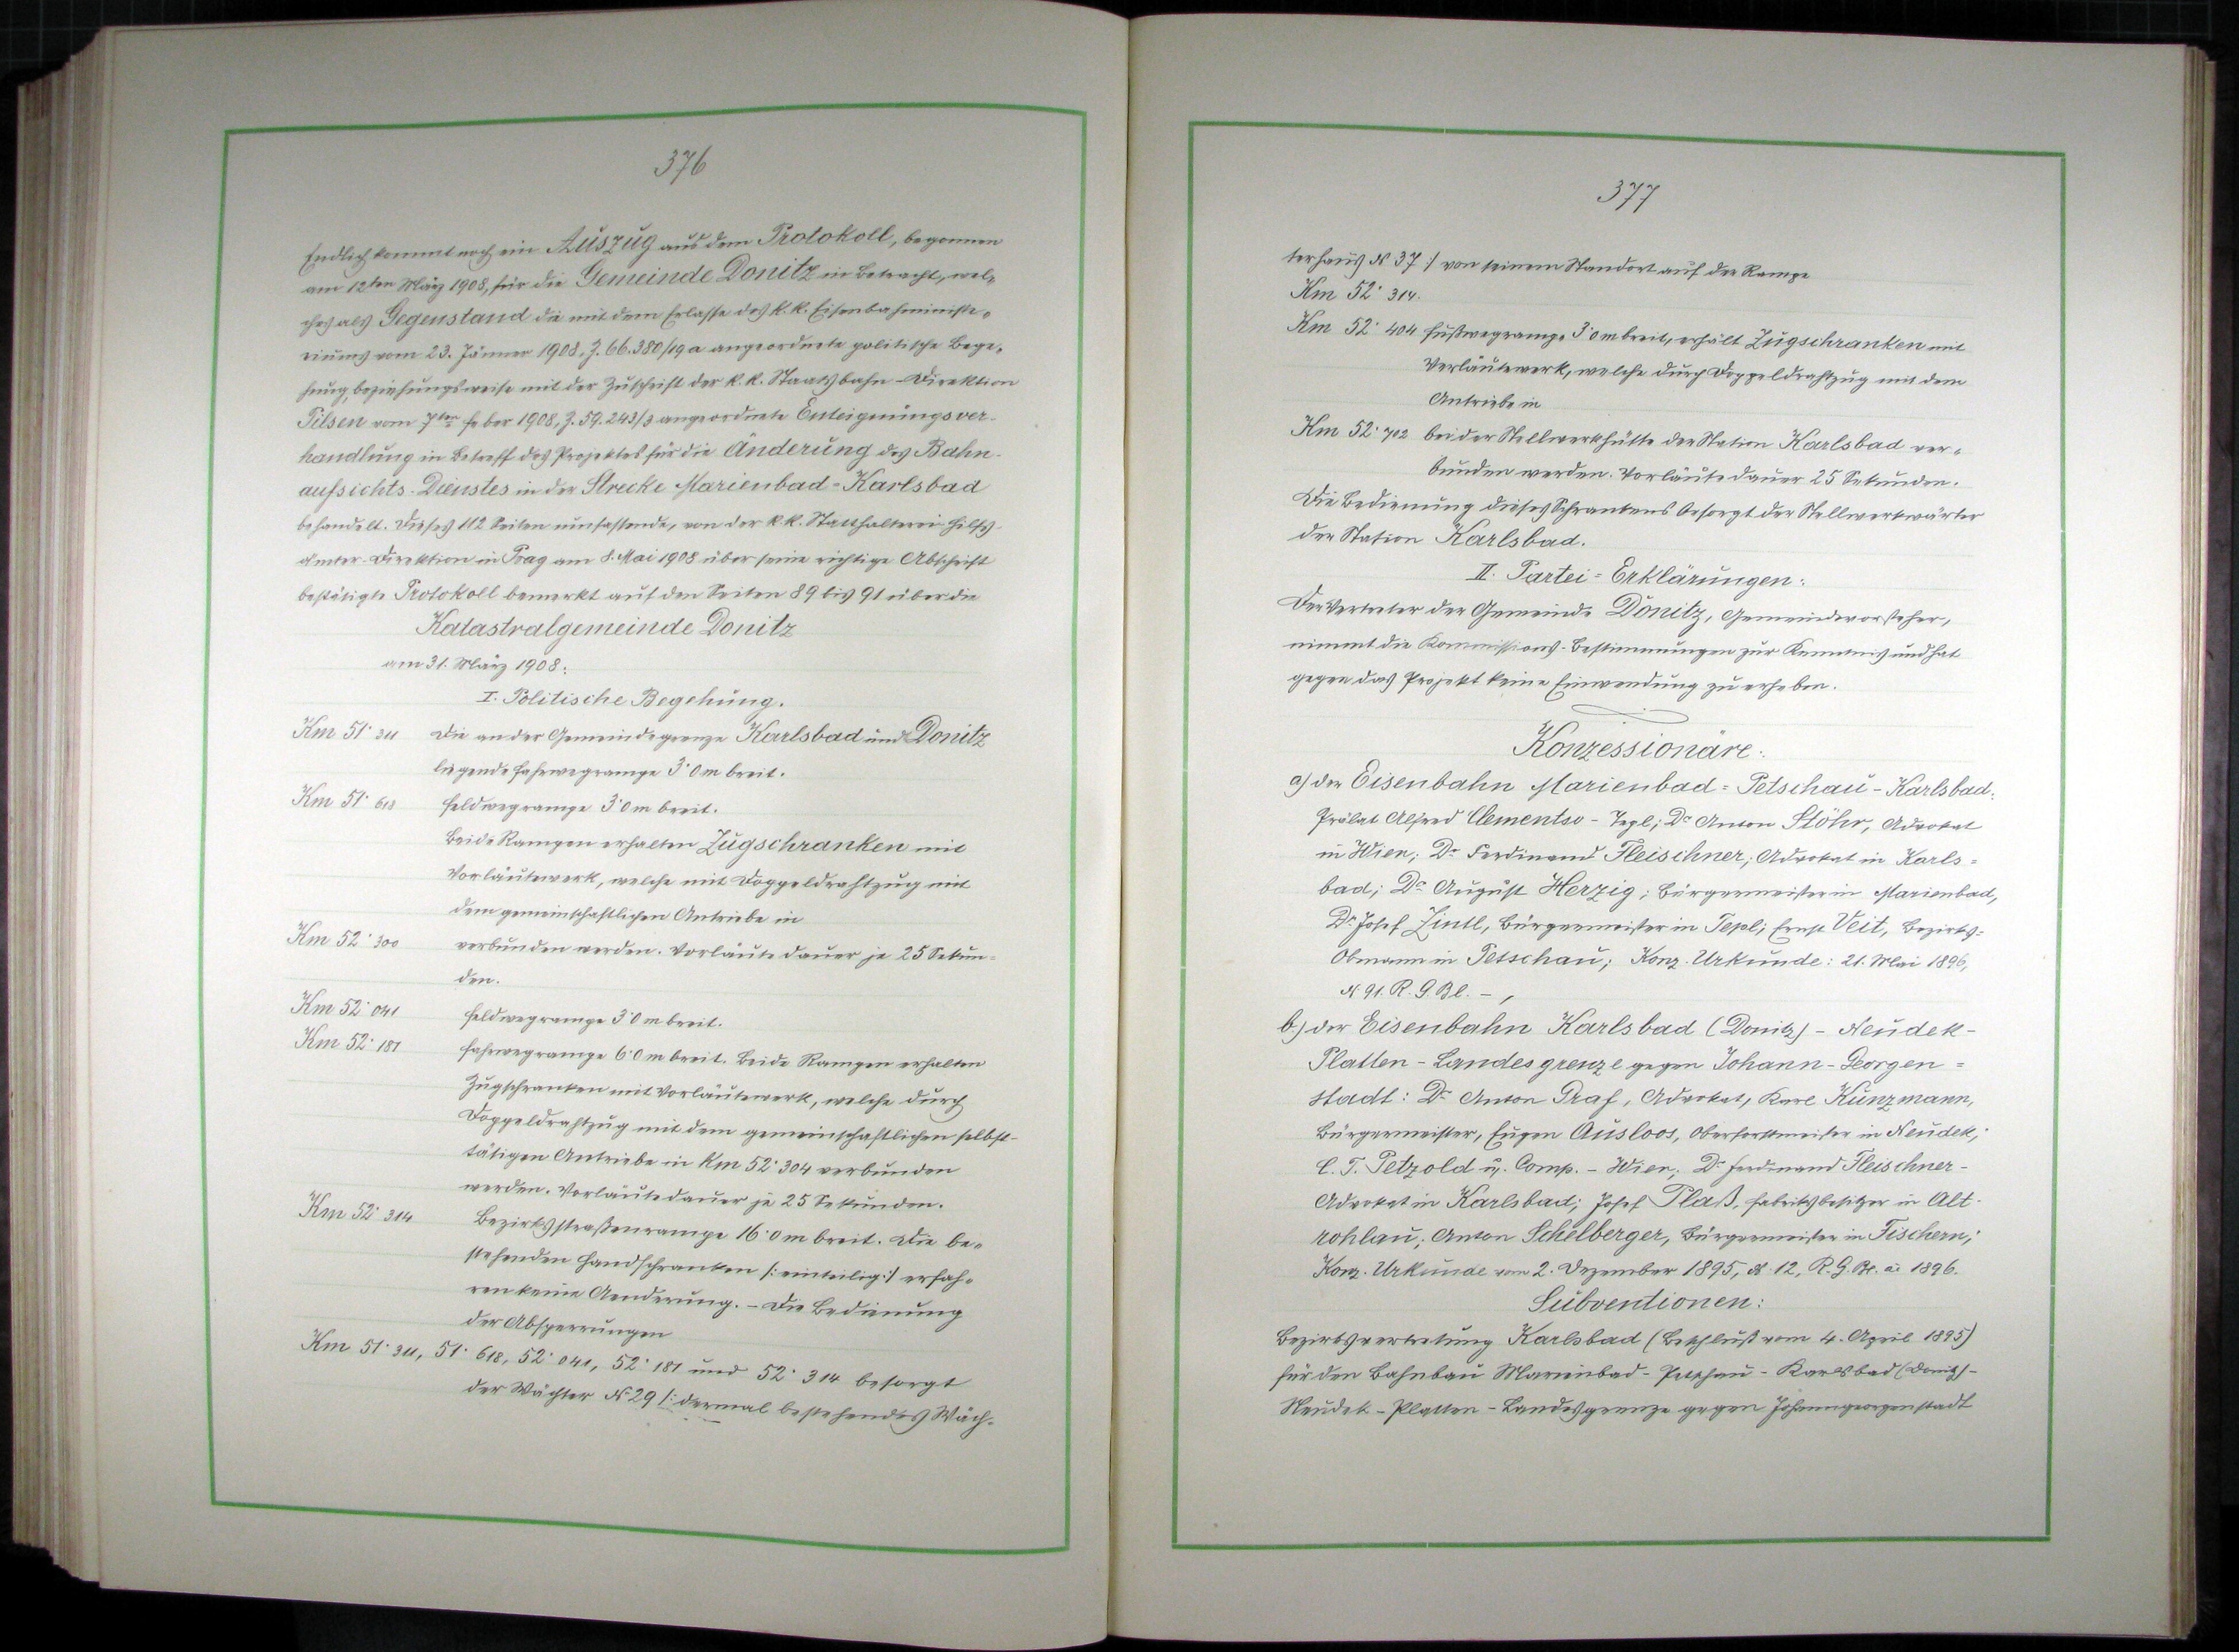 376
Endlich kommt noch ein Auszug aus dem Protokoll, begonnen
am 12ten März 1908, für die Gemeinde Donitz in Betracht, wel-
ches als Gegenstand die mit dem Erlasse des k. k. Eisenbahnministe-
riums vom 23. Jänner 1908, Z. 66.380/19a angeordnete politische Bege-
hung, beziehungsweise mit der Zuschrift der k. k. Staatsbahn-Direktion
Pilsen vom 7ten feber 1908, Z. 59.243/3 angeordnete Enteignungsver-
handlung in Betreff des Projektes für die Änderung des Bahn-
aufsichts-Dienstes in der Strecke Marienbad-Karlsbad
behandelt. Dieses 112 Seiten umfassende, von der k. k. Statthalterei-Hilfs-
ämter-Direktion in Prag am 8. Mai 1908 über seine richtige Abschrift
bestätigte Protokoll bemerkt auf den Seiten 89 bis 91 über die
Katastralgemeinde Donitz
am 31. März 1908:
I. Politische Begehung.
Km 51·311 Die an der Gemeindegrenze Karlsbad und Donitz
liegende Fahrwegrampe 3·0 m breit.
Km 51·618 Feldwegrampe 3·0 m breit.
Beide Rampen erhalten Zugschranken mit
Vorläutewerk, welche mit Doppeldrahtzug mit
dem gemeinschaftlichen Antriebe in
Km 52·300 verbunden werden. Vorläutedauer je 25 Sekun-
den.
Km 52·041 Feldwegrampe 3·0 m breit.
Km 52·181 Fahrwegrampe 6·0 m breit. Beide Rampen erhalten
Zugschranken mit Vorläutewerk, welche durch
Doppeldrahtzug mit dem gemeinschaftlichen selbst-
tätigen Antriebe in Km 52·304 verbunden
werden. Vorläutedauer je 25 Sekunden.
Km 52·314 Bezirksstraßenrampe 16·0 m breit. Die be-
stehenden Handschranken /: einteilig :/ erfah-
ren keine Aenderung. - Die Bedienung
der Absperrungen
Km 51·311, 51·618, 52·041, 52·181 und 52·314 besorgt
der Wächter No 29 /: dermal bestehendes Wäch-
377
terhaus No 37 :/ von seinem Standort auf der Rampe
Km 52·314.
Km 52·404 Fußwegrampe 3·0 m breit, erhält Zugschranken mit
Vorläutewerk, welche durch Doppeldrahtzug mit dem
Antriebe in
Km 52·702 bei der Stellwerkhütte der Station Karlsbad ver-
bunden werden. Vorläutedauer 25 Sekunden.
Die Bedienung dieses Schrankens besorgt der Stellwerkwärter
der Station Karlsbad.
II. Partei-Erklärungen:
Der Vertreter der Gemeinde Donitz, Gemeindevorsteher,
nimmt die Kommissions-Bestimmungen zur Kenntnis und hat
gegen das Projekt keine Einwendung zu erheben.
Konzessionäre:
a) der Eisenbahn Marienbad-Petschau-Karlsbad:
Prälat Alfred Clementso - Tepl; Dr Anton Stöhr, Advokat
in Wien; Dr Ferdinand Fleischner, Advokat in Karls-
bad; Dr August Herzig; Bürgermeister in Marienbad,
Dr Josef Zintl, Bürgermeister in Tepl; Ernst Veit, Bezirks-
Obmann in Petschau; Konz. Urkunde: 21. Mai 1896,
No 91. R. G. Bl. -,
b) der Eisenbahn Karlsbad (Donitz) - Neudek-
Platten - Landesgrenze gegen Johann-Georgen-
stadt: Dr Anton Praf, Advokat, Karl Kunzmann,
Bürgermeister, Eugen Ausloos, Oberforstmeister in Neudek;
C. T. Petzold u. Comp. - Wien; Dr Ferdinand Fleischner-
Advokat in Karlsbad; Josef Plaß, Fabriksbesitzer in Alt-
rohlau; Anton Schelberger, Bürgermeister in Fischern;
Konz. Urkunde vom 2. Dezember 1895, No 12, R. G. Bl. ai 1896.
Subventionen:
Bezirksvertretung Karlsbad (Beschluß vom 4. April 1895)
für den Bahnbau Marienbad - Petschau - Karlsbad (Donitz) -
Neudek - Platten - Landesgrenze gegen Johanngeorgenstadt